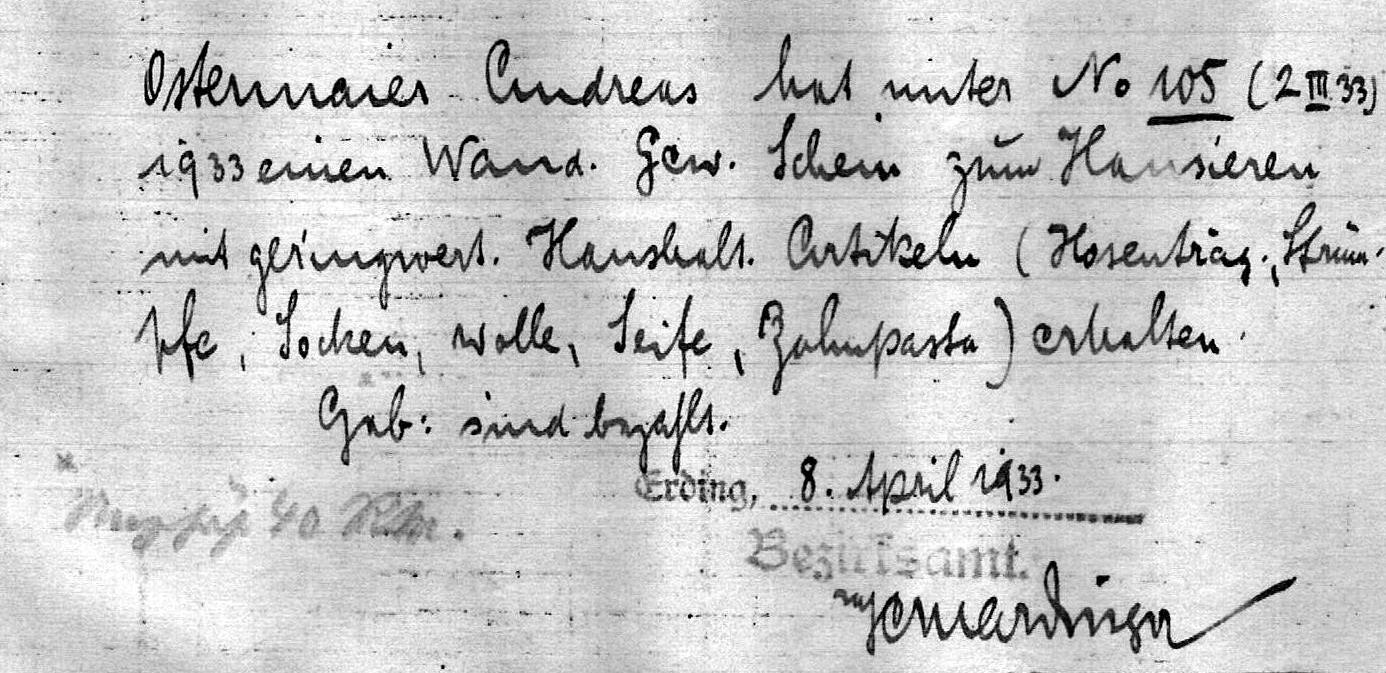 Ostermaier Andreas hat unter No 105 (2 III 33)
1933 einen Wand. Gew. Schein zum Hausieren
mit geringwert. Haushalt. Artikeln (Hosenträg., Strüm-
pfe, Socken, Wolle, Seife, Zahnpasta) erhalten.
Geb: sind bezahlt.
Erding, 8. April 1933.
40
Bezirksamt.